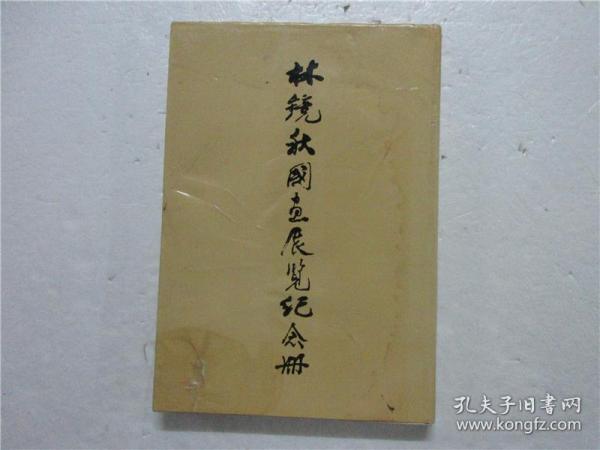 林鏡秋國画展覽纪念册
孔夫子旧書网
www.kongfz.com